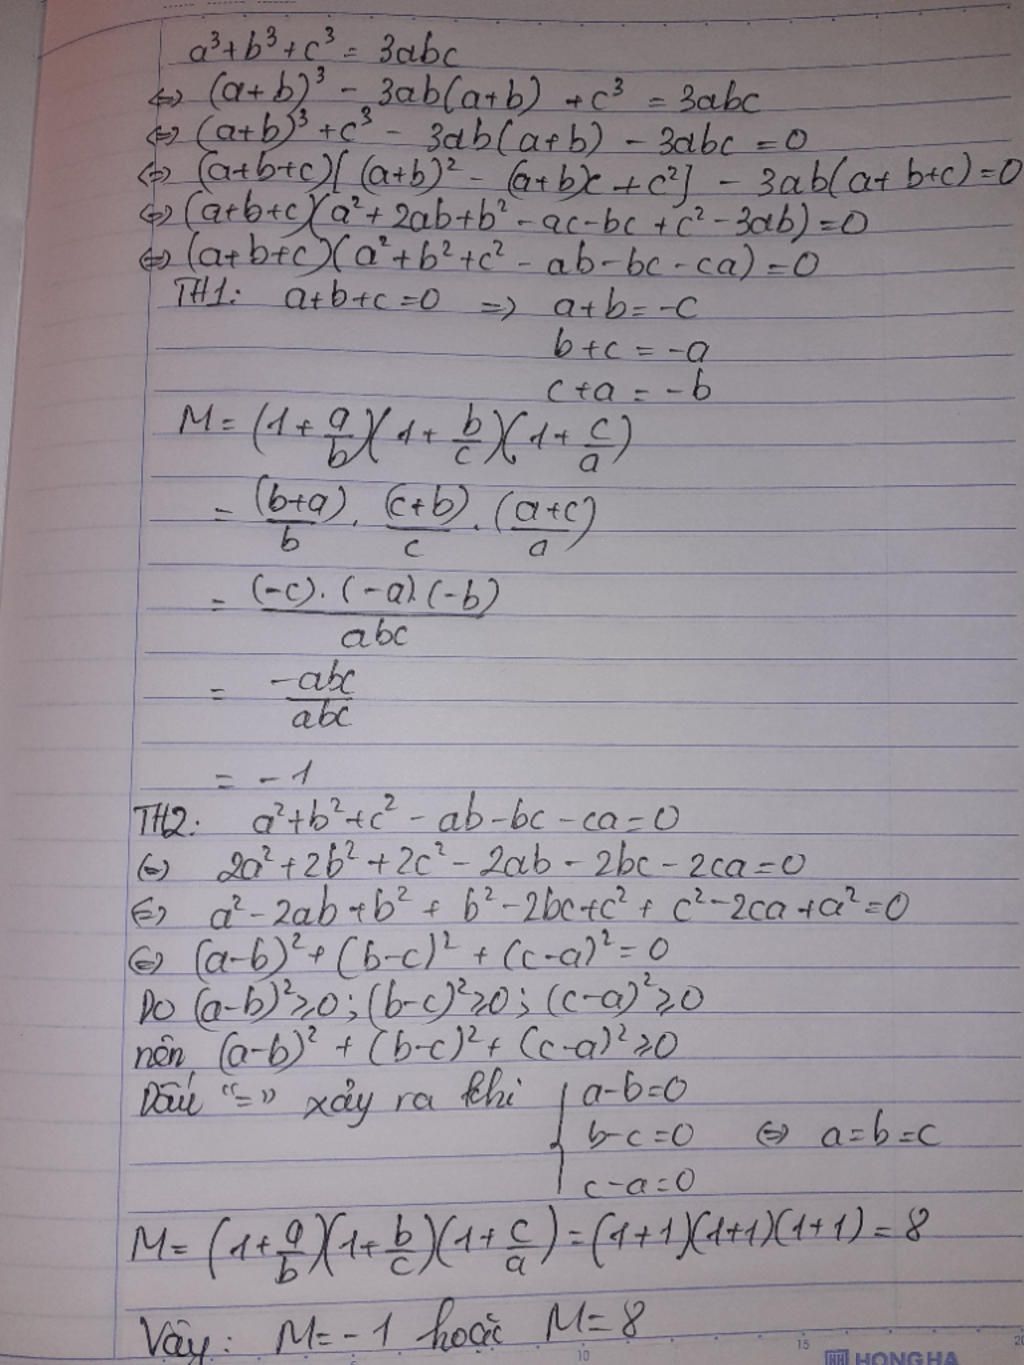 a³+b³+c³ = 3abc
⇔ (a+b)³ - 3ab(a+b) + c³ = 3abc
⇔ (a+b)³ + c³ - 3ab(a+b) - 3abc = 0
⇔ (a+b+c)[(a+b)² - (a+b)c + c²] - 3ab(a+b+c) = 0
⇔ (a+b+c)(a² + 2ab + b² - ac - bc + c² - 3ab) = 0
⇔ (a+b+c)(a² + b² + c² - ab - bc - ca) = 0
TH1: a+b+c = 0 ⇒ a+b = -c
b+c = -a
c+a = -b
M = (1 + a/b)(1 + b/c)(1 + c/a)
= (b+a)/b . (c+b)/c . (a+c)/a
= (-c).(-a).(-b)/abc
= -abc/abc
= -1
TH2: a² + b² + c² - ab - bc - ca = 0
⇔ 2a² + 2b² + 2c² - 2ab - 2bc - 2ca = 0
⇔ a² - 2ab + b² + b² - 2bc + c² + c² - 2ca + a² = 0
⇔ (a-b)² + (b-c)² + (c-a)² = 0
Do (a-b)² ≥ 0; (b-c)² ≥ 0; (c-a)² ≥ 0
nên (a-b)² + (b-c)² + (c-a)² ≥ 0
Dấu "=" xảy ra khi { a-b=0
b-c=0 ⇔ a=b=c
c-a=0
M = (1 + a/b)(1 + b/c)(1 + c/a) = (1+1)(1+1)(1+1) = 8
Vậy: M = -1 hoặc M = 8
10 15 20
HH HONG HA